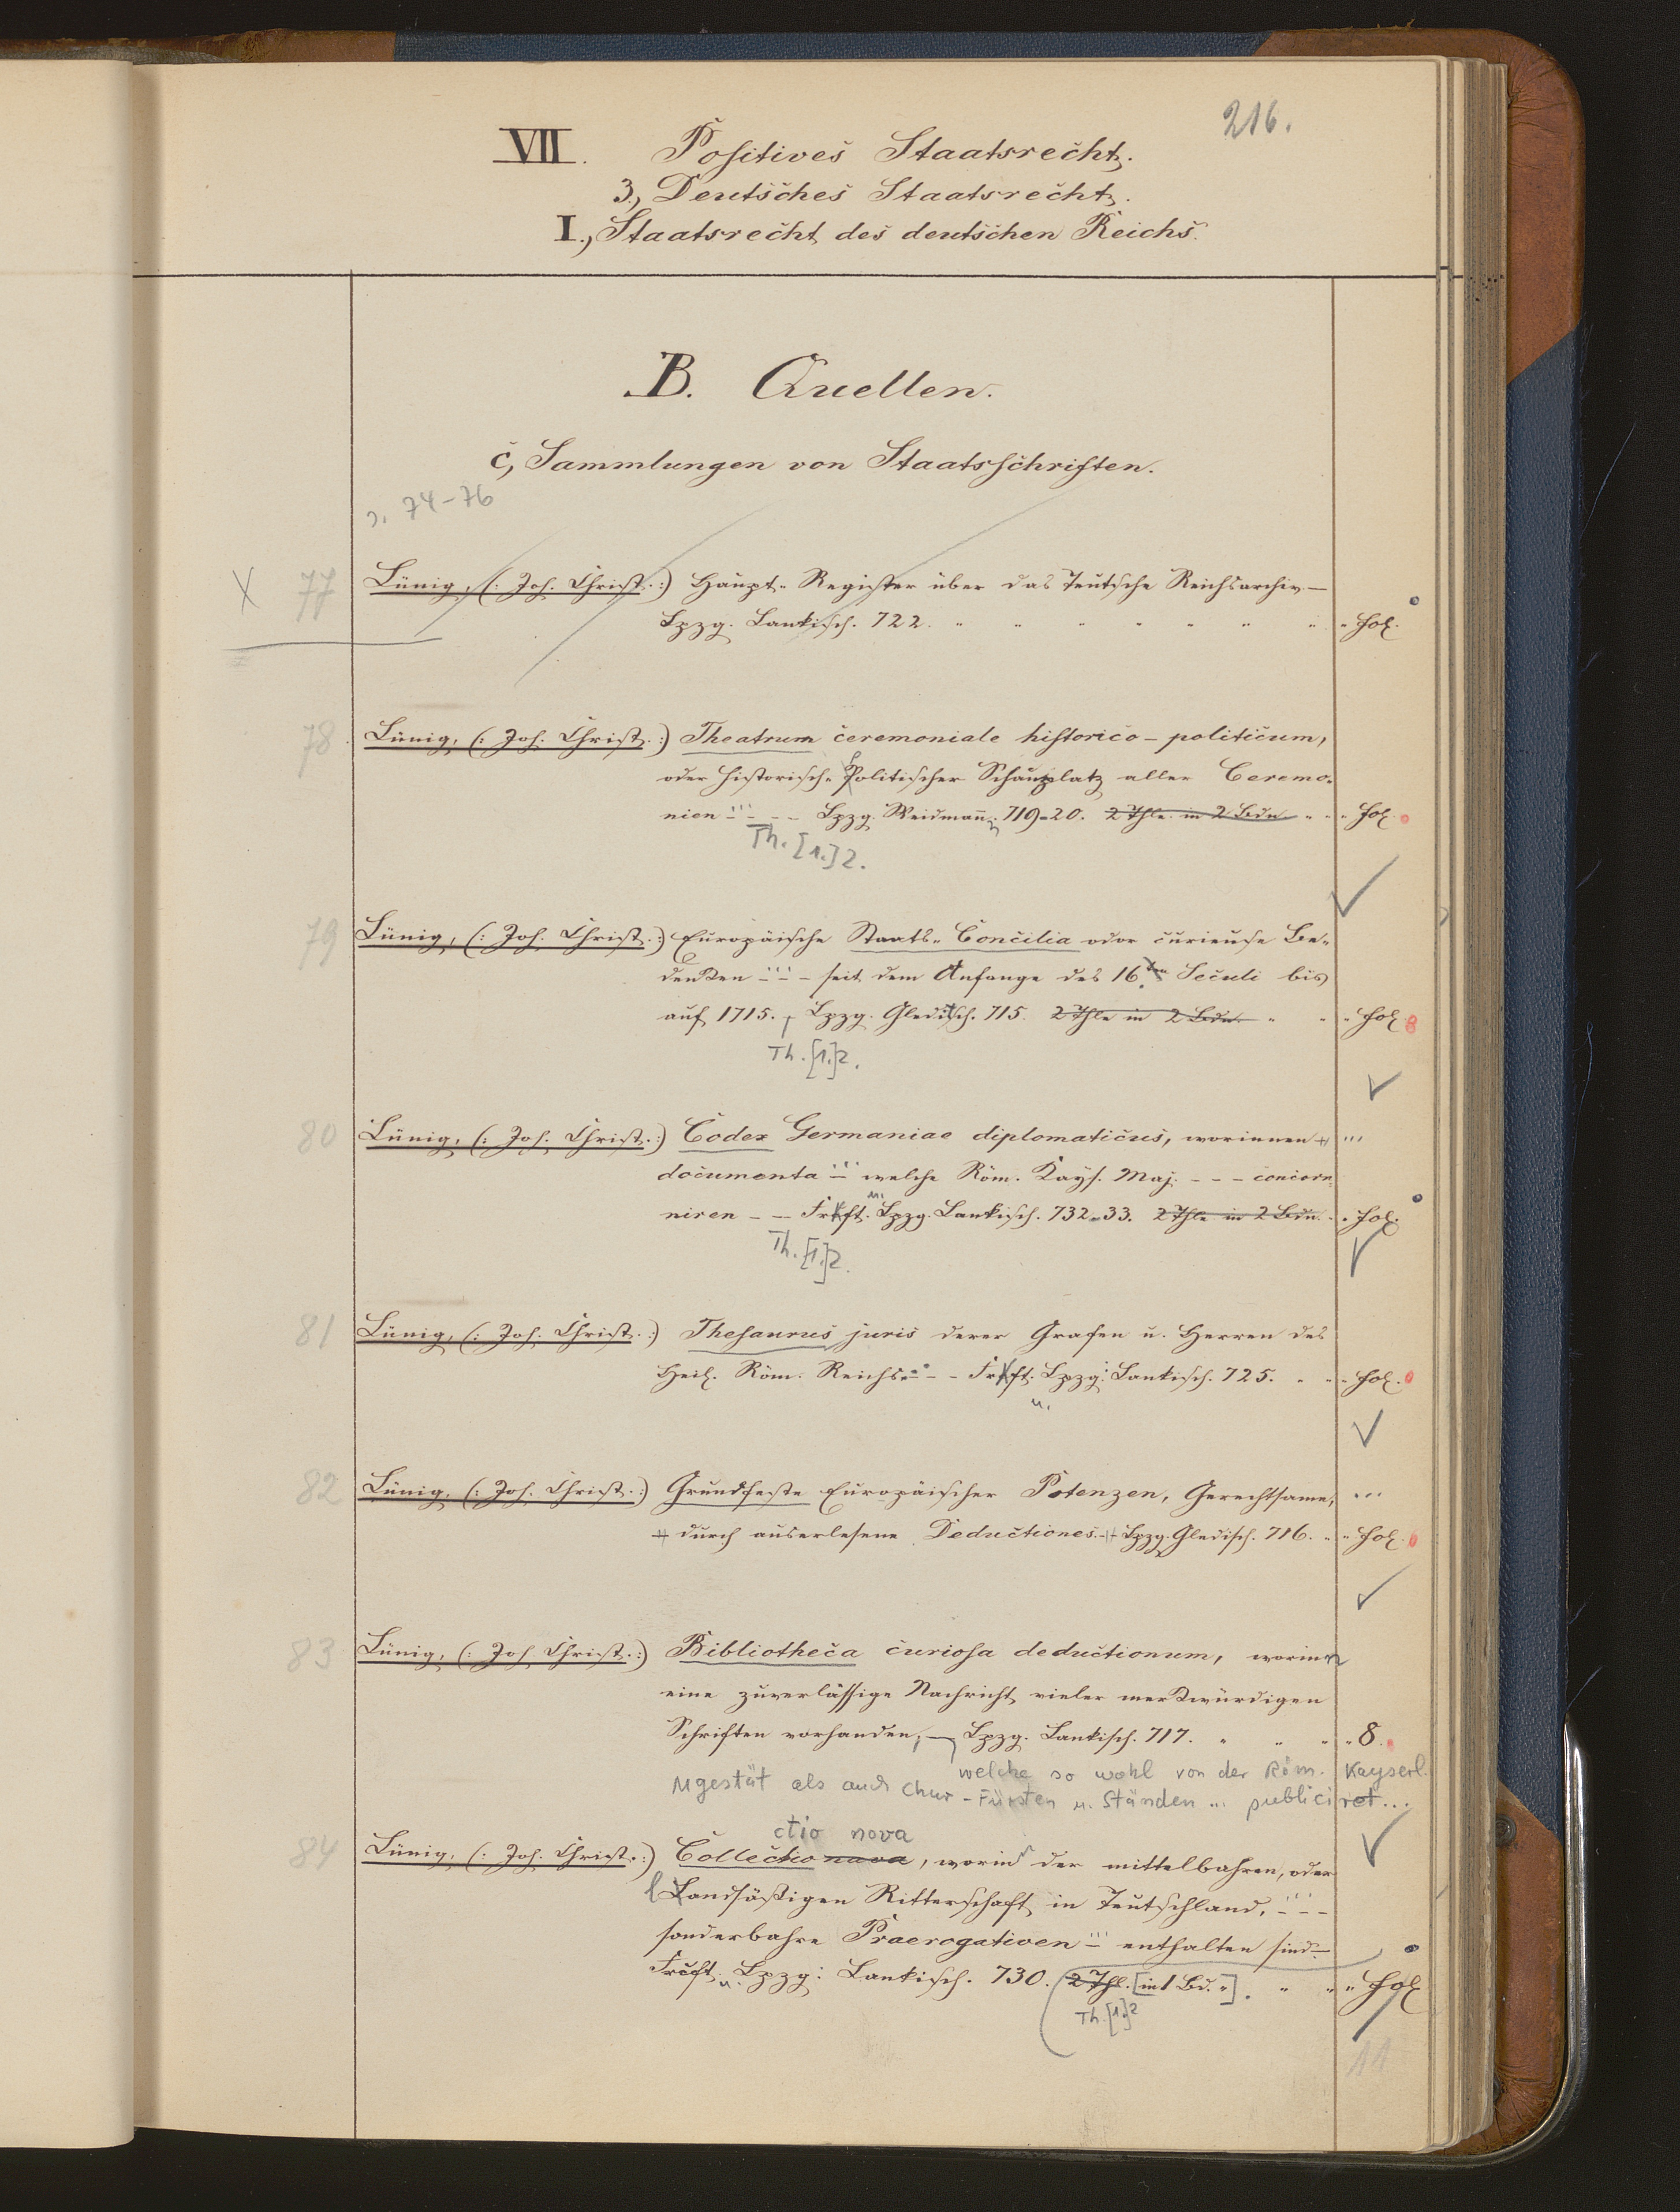 216.
VII. Positives Staatsrecht.
3, Deutsches Staatsrecht.
I., Staatsrecht des deutschen Reichs.
B. Quellen.
c, Sammlungen von Staatsschriften.
s. 74-76
X 77 Lünig, (: Joh. Christ. :) Haupt-Register über das Teutsche Reichsarchiv. —
Lpzg. Lankisch. 722. " " " " " " " " Fol.
78 Lünig, (: Joh. Christ. :) Theatrum ceremoniale historico-politicum,
oder Historisch-Politischer Schauplatz aller Ceremo-
nien ... - - Lpzg. Weidmann 719-20. 2 Thle. in 2 Bdn. " " " Fol.
Th. [1.] 2.
79 Lünig, (: Joh. Christ. :) Europäische Staats-Concilia oder curieuse Be-
denken ... - seit dem Anfange des 16. Seculi bis
auf 1715. Lpzg. Gleditsch. 715. 2 Thle in 2 Bdn. " " " Fol.
Th. [1.] 2.
80 Lünig, (: Joh. Christ. :) Codex Germaniae diplomaticus, worinnen ...
documenta ... welche Röm. Kays. Maj. - - - concern-
niren - - Frkft. u. Lpzg. Lankisch. 732-33. 2 Thle in 2 Bdn. " Fol.
Th. [1.] 2.
81 Lünig, (: Joh. Christ. :) Thesaurus juris derer Grafen u. Herren des
Heil. Röm. Reichs ... - - Frkft. u. Lpzg: Lankisch. 725. " " " Fol.
82 Lünig, (: Joh. Christ. :) Grundfeste Europäischer Potenzen, Gerechtsame, ...
durch auserlesene Deductiones. Lpzg. Gledisch. 716. " " Fol.
83 Lünig, (: Joh Christ. :) Bibliotheca curiosa deductionum, worinn
eine zuverlässige Nachricht vieler merkwürdigen
Schriften vorhanden, — Lpzg. Lankisch. 717. " " " " 8.
welche so wohl von der Röm. Kayserl.
Mgestät als auch Chur-Fürsten u. Ständen ... publiciret ...
ctio nova
84 Lünig, (: Joh. Christ. :) Collectio nova, worin der mittelbahren, oder
Landsäßigen Ritterschaft in Teutschland, ... -
sonderbahre Praerogativen ... enthalten sind. —
Frcft. u. Lpzg: Lankisch. 730. 2 Thl. [in 1 Bd. "]. " " " Fol
Th. [1.] 2
11